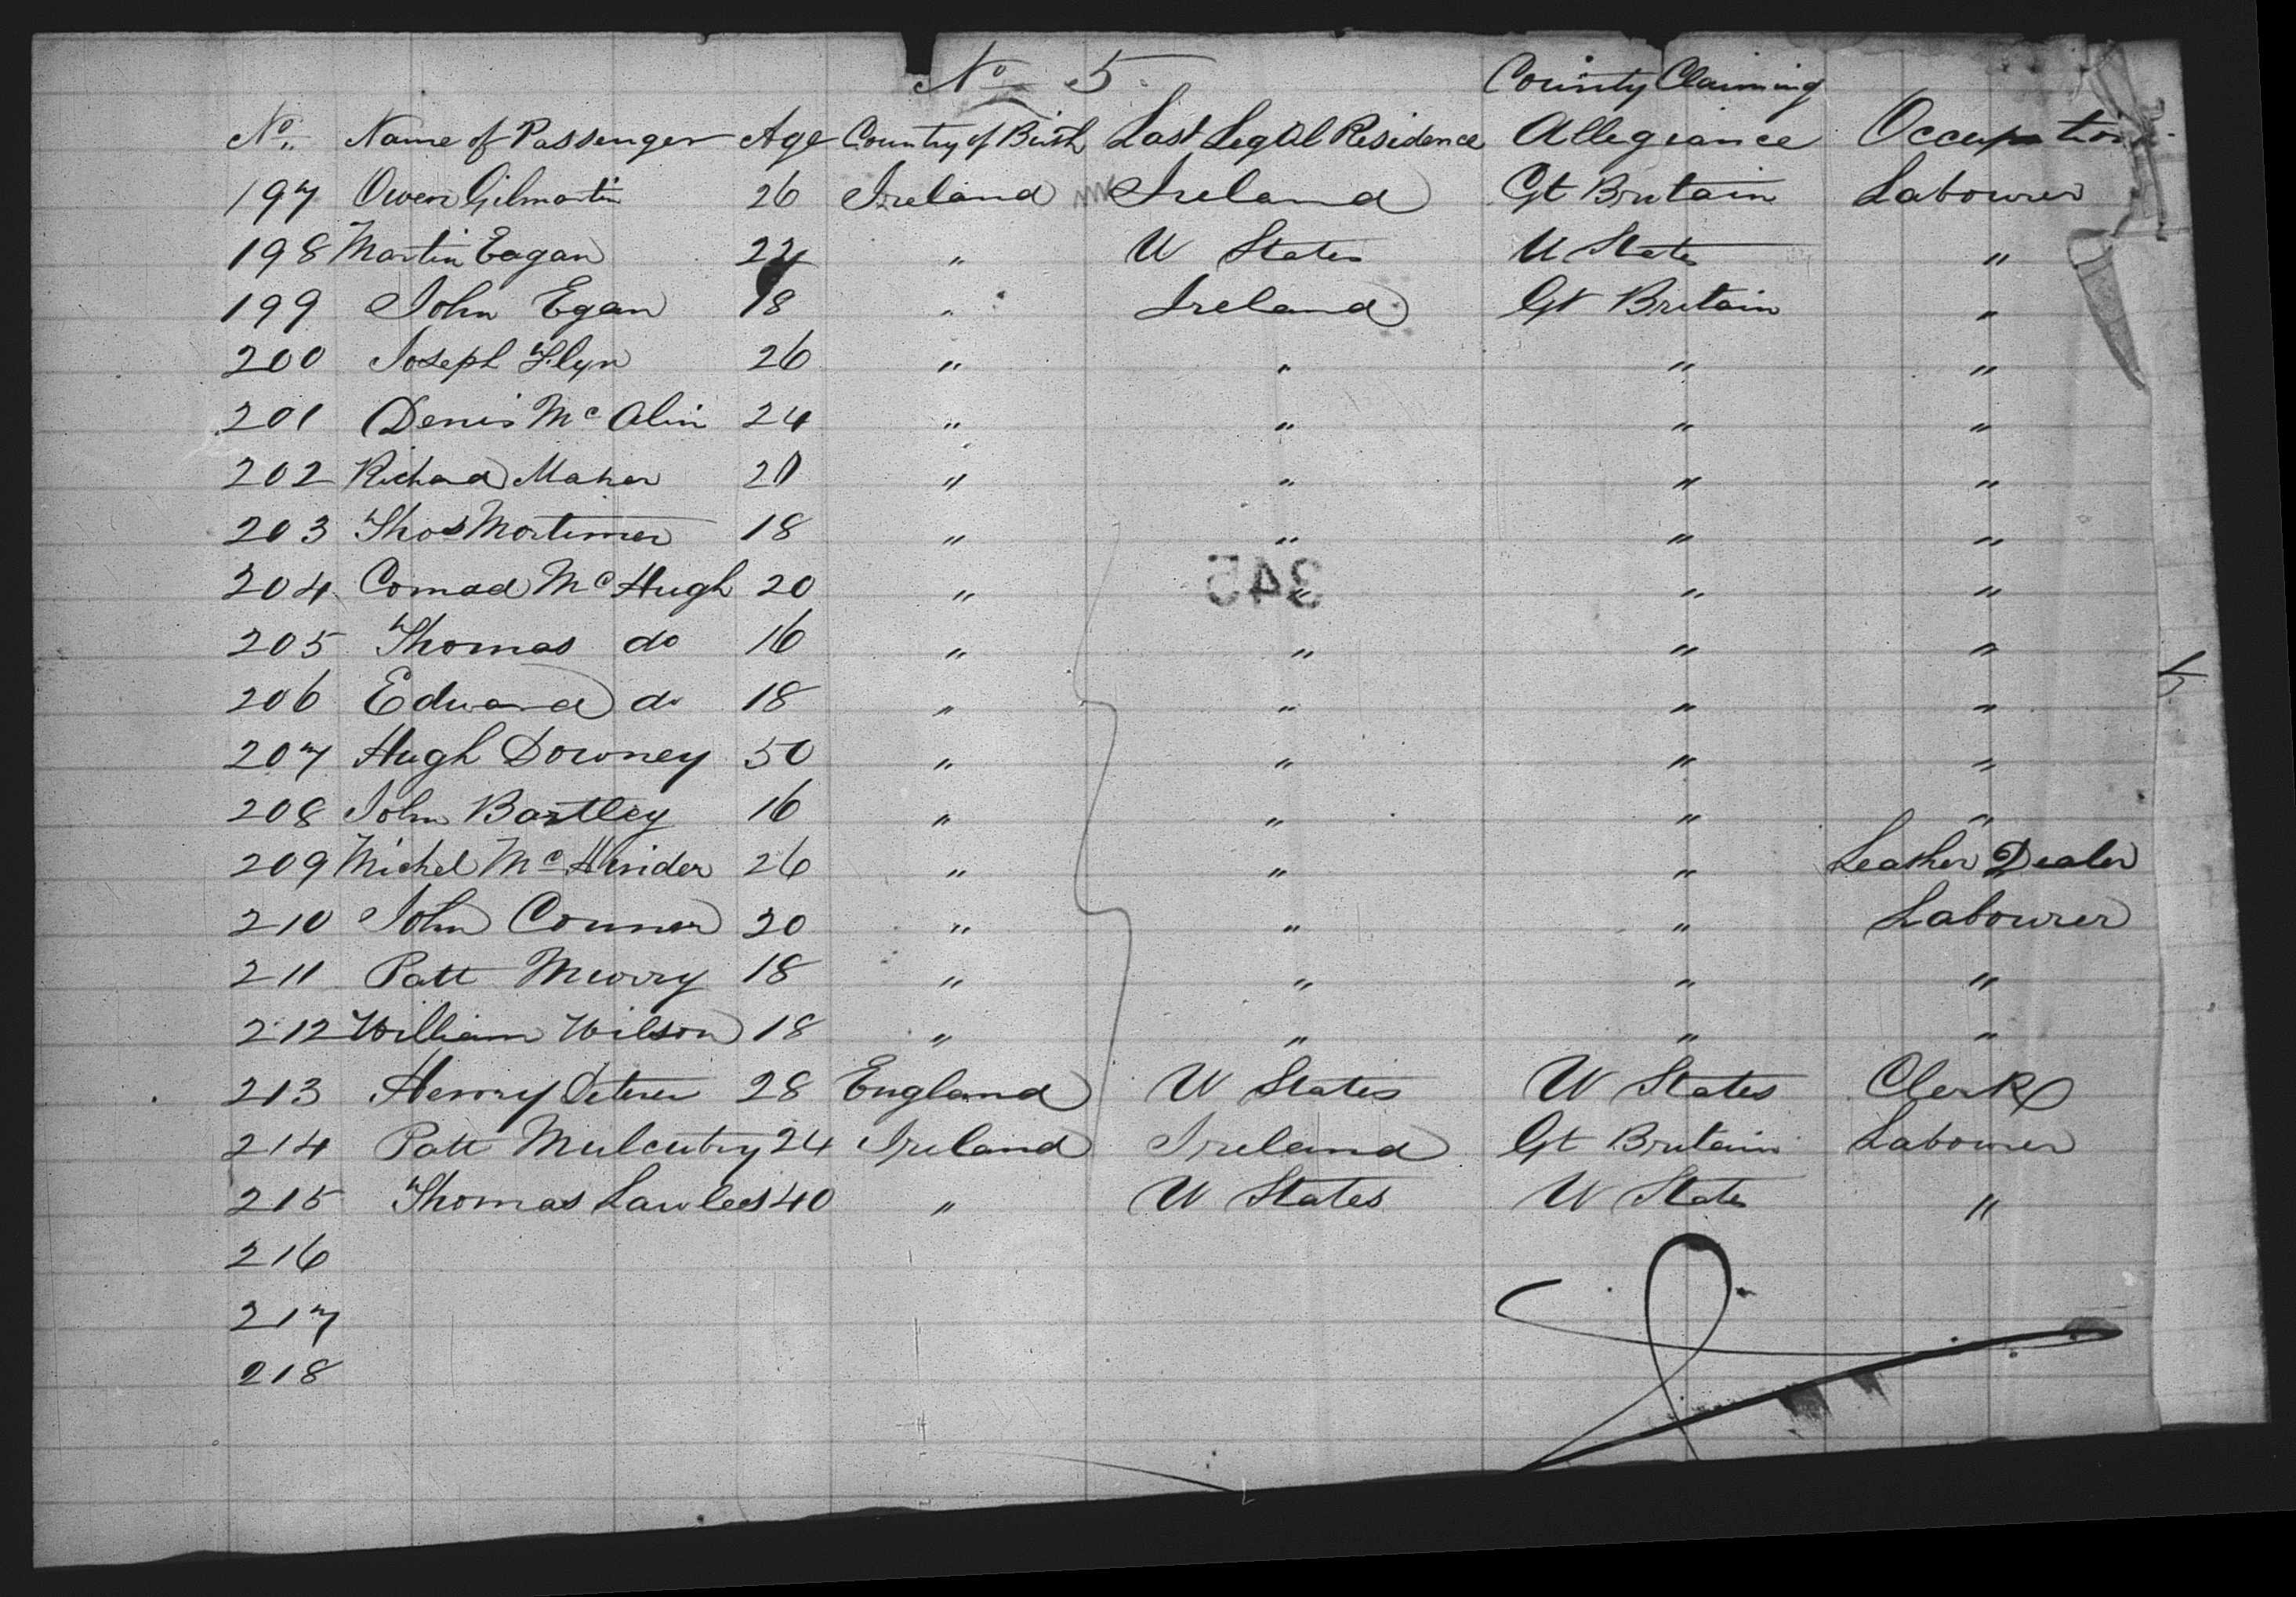 No 5
County Claiming
No. Name of Passenger Age Country of Birth Last Legal Residence Allegiance Occupation
197 Owen Gilmartin 26 Ireland Ireland Gt Britain Labourer
198 Martin Eagan 22 " U States U States "
199 John Egan 18 " Ireland Gt Britain "
200 Joseph Flyn 26 " " " "
201 Denis Mc Alin 24 " " " "
202 Richad Maher 21 " " " "
203 Thos Mortimer 18 " " " "
204 Mc Hugh 20 " " " "
345
205 Thomas do 16 " " " "
206 Edward do 18 " " " "
207 Hugh Downey 50 " " " "
208 John Bartley 16 " " " "
209 Michel Mc 26 " " " Leather Dealer
210 John Conner 20 " " " Labourer
211 Patt Murry 18 " " " "
212 William Wilson 18 " " " "
213 Henry 28 England U States U States Clerk
214 Patt 24 Ireland Ireland Gt Britain Labourer
215 Thomas Lawless 40 " U States U States "
216
217
218